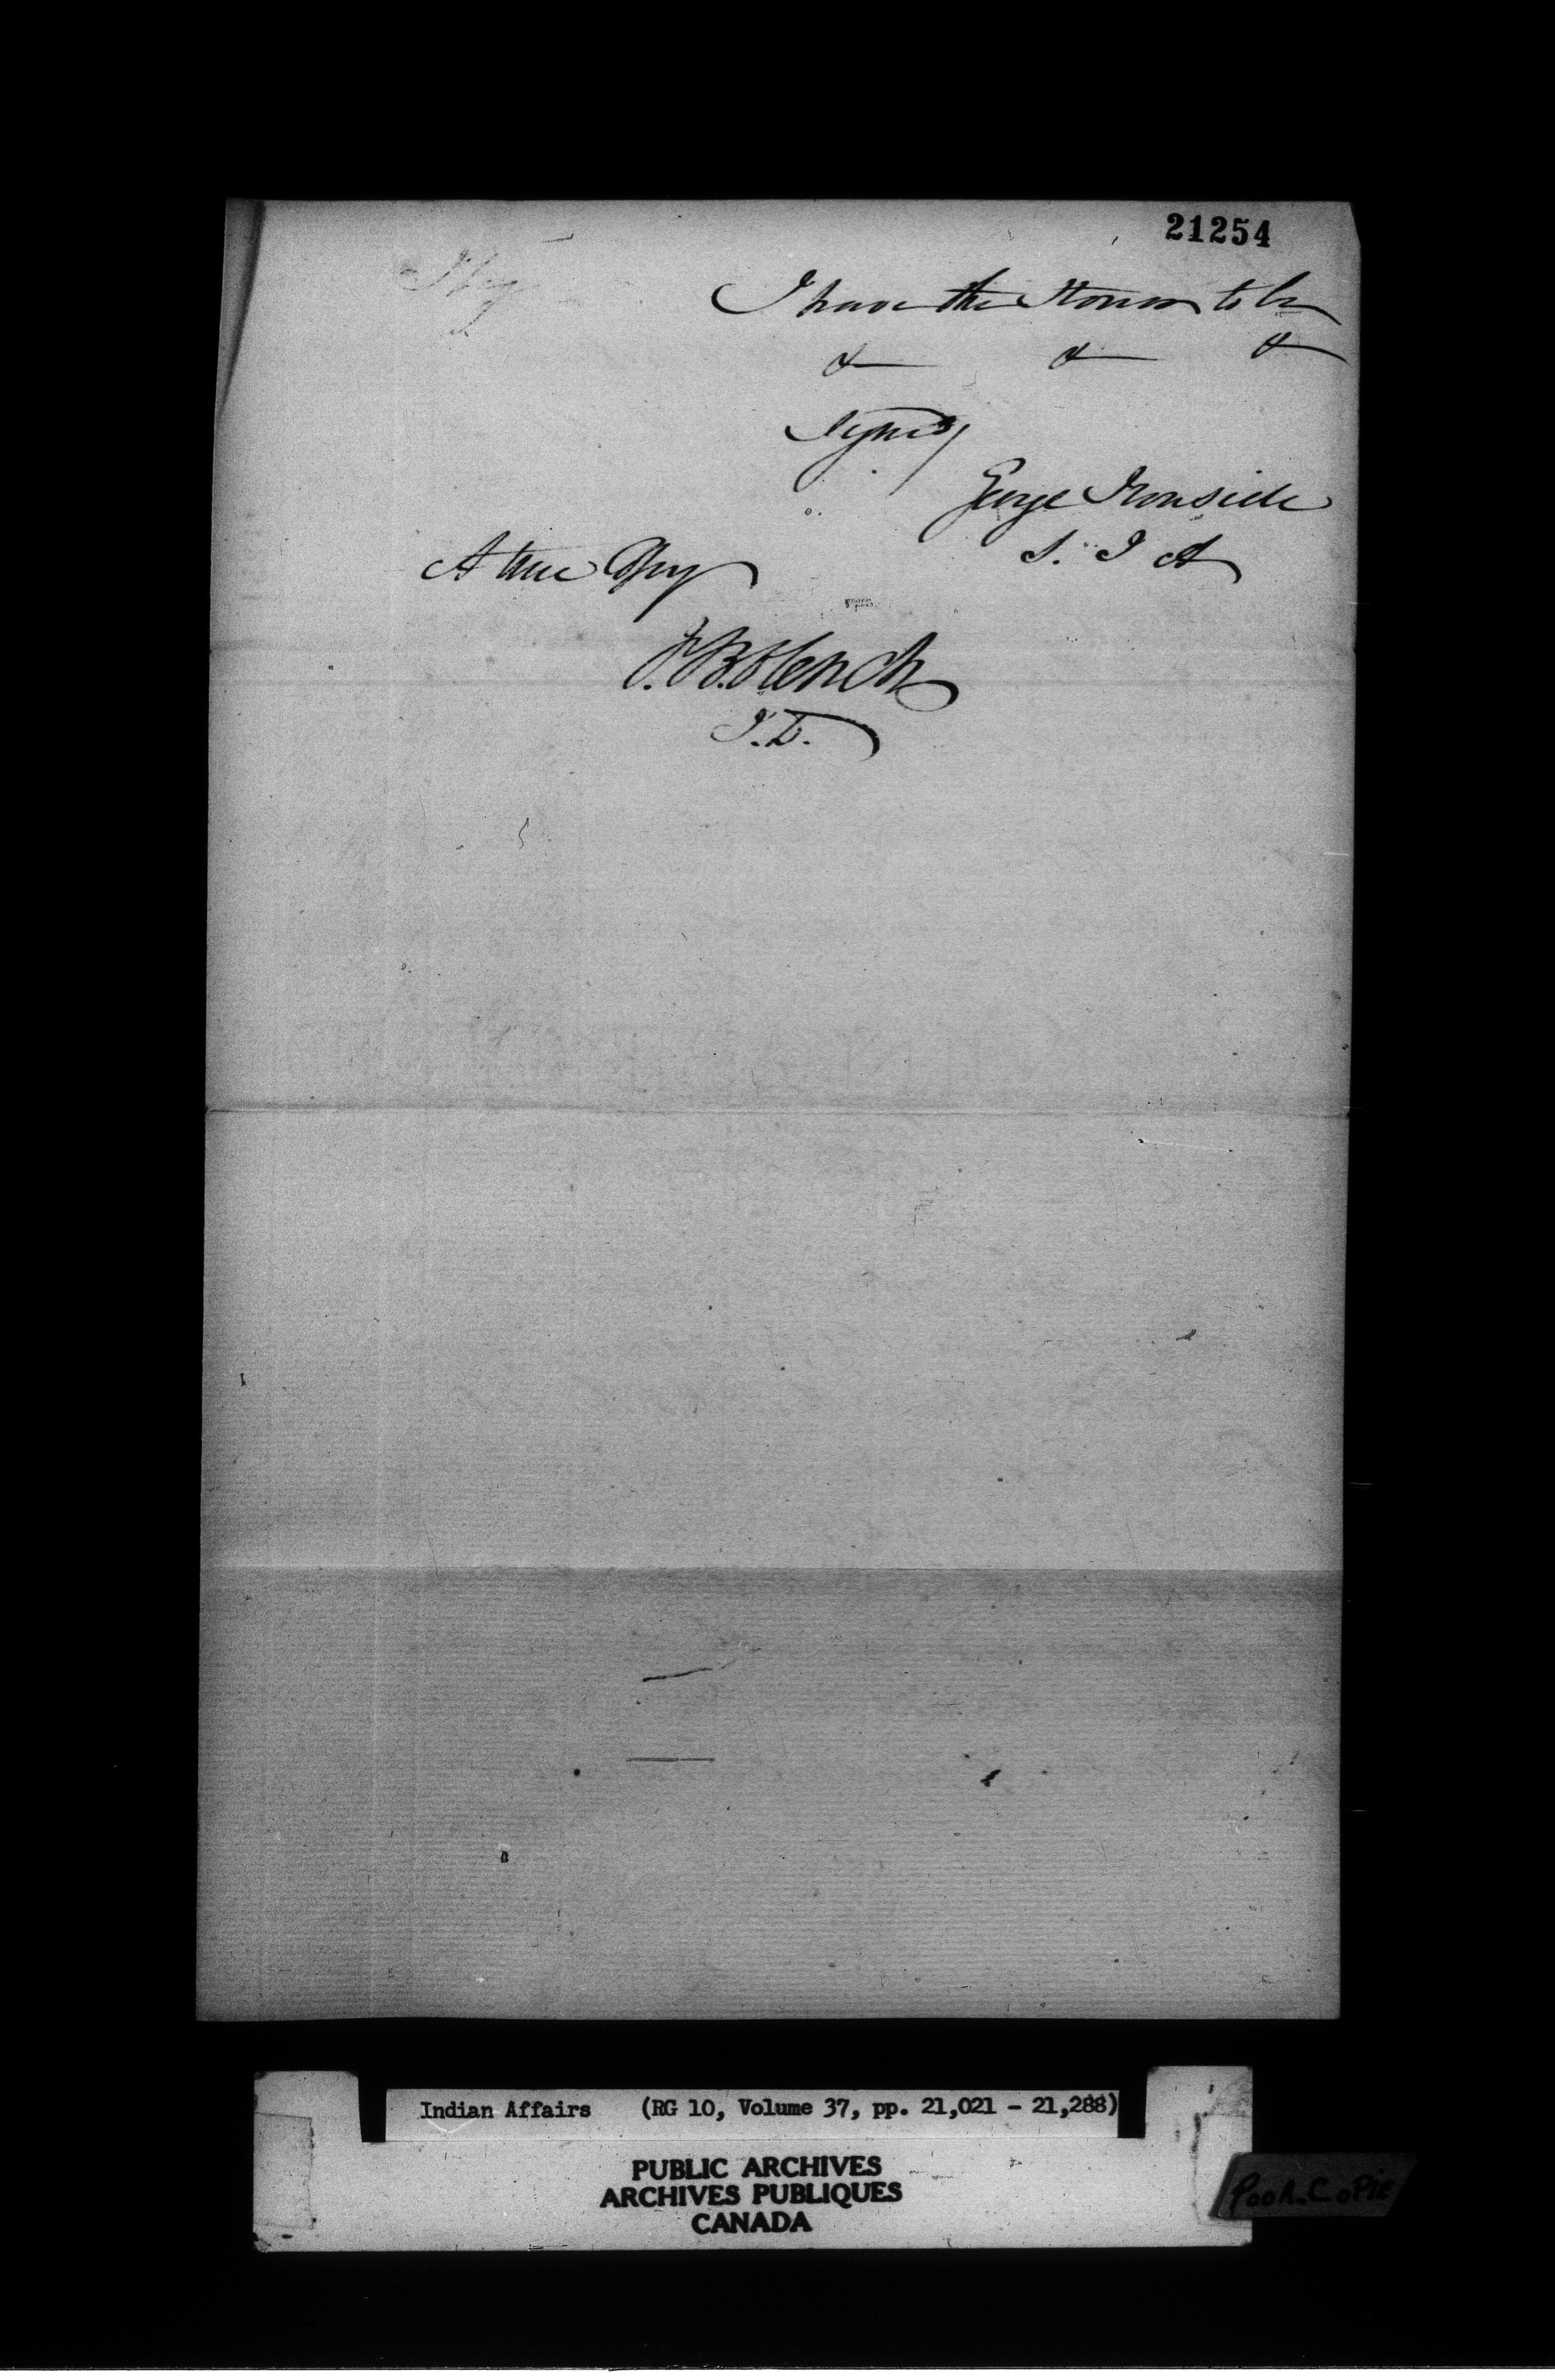 21254
I have the Honor to be
& & &
Signed/
George Ironside
S. I A
A true Copy
J.B. Clench
I.D.
Indian Affairs (RG 10, Volume 37, pp. 21,021 - 21,288)
PUBLIC ARCHIVES
ARCHIVES PUBLIQUES
CANADA
POOR.COPIE